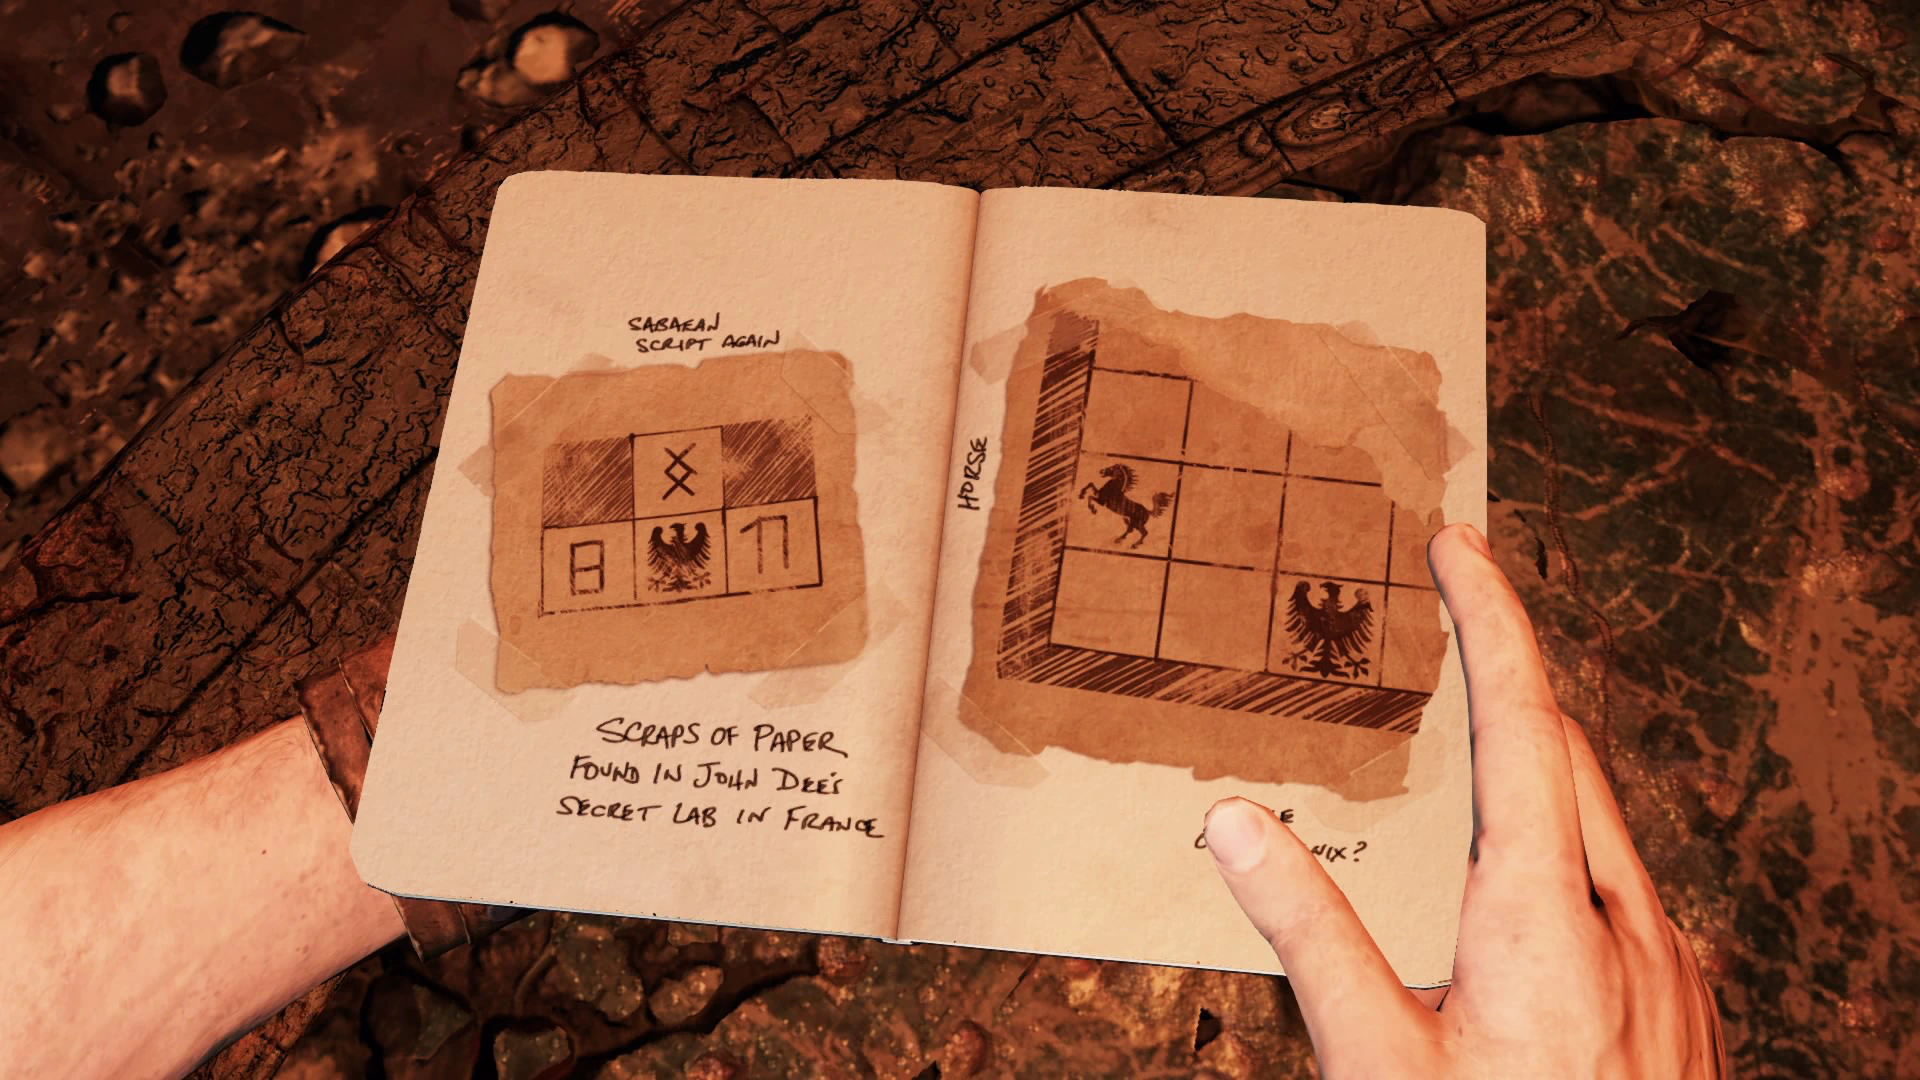 SABAEAN
SCRIPT AGAIN
SCRAPS OF PAPER
FOUND IN JOHN DEE'S
SECRET LAB IN FRANCE
HORSE